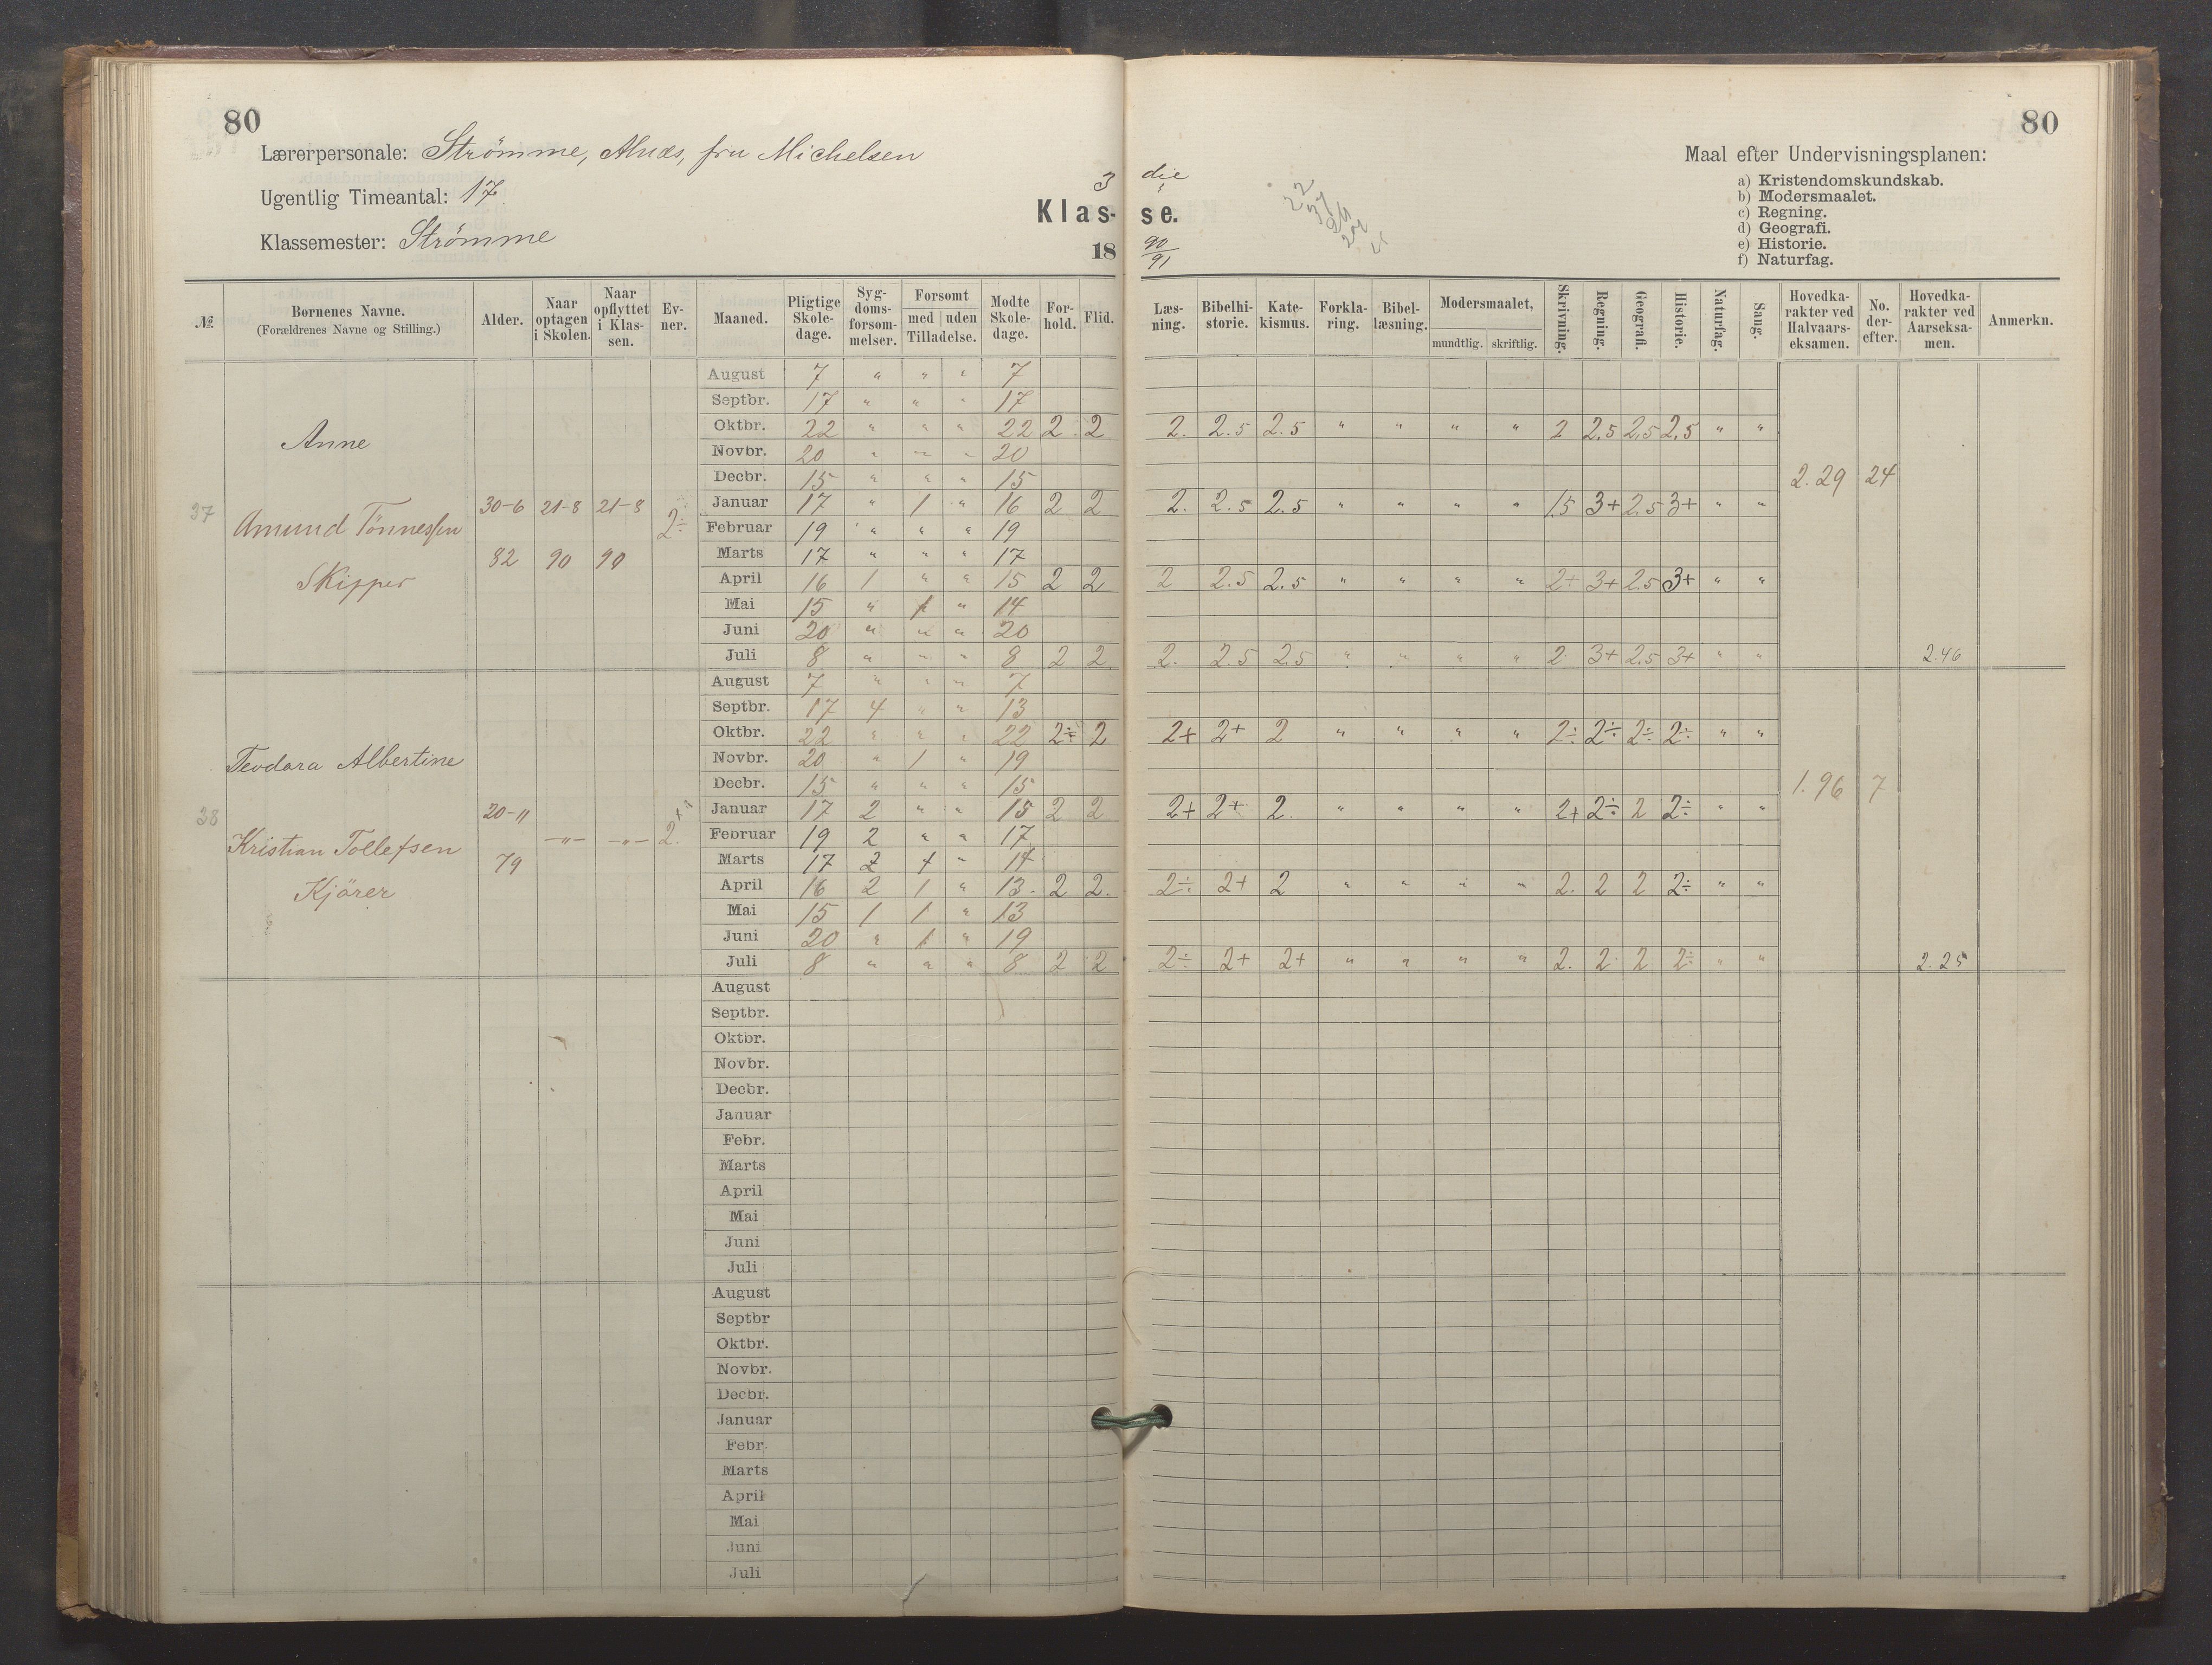 80
80
Lærerpersonale: Strömme, Alnæs, fru Michelsen
Ugentlig Timeantal: 17
Klassemester: Strömme
3 die
Klas- se.
18 90/91
Maal efter Undervisningsplanen:
a) Kristendomskundskab.
b) Modersmaalet.
c) Regning.
d) Geografi.
e) Historie.
f) Naturfag.
№ Børnenes Navne. (Forældrenes Navne og Stilling.) Alder. Naar optagen i Skolen. Naar opflyttet i Klassen. Evner. Maaned. Pligtige Skoledage. Sygdomsforsømmelser. Forsømt med uden Tilladelse. Mødte Skoledage. Forhold. Flid. Læsning. Bibelhistorie. Katekismus. Forklaring. Bibellæsning. Modersmaalet, mundtlig. skriftlig. Skrivning. Regning. Geografi. Historie. Naturfag. Sang. Hovedkarakter ved Halvaarseksamen. No. derefter. Hovedkarakter ved Aarseksamen. Anmerkn.
37
Anne
Amund Tönnessen
Skipper
30-6 21-8 21-8
82 90 90
2÷
August 7 " " " 7
Septbr. 17 " " " 17
Oktbr. 22 " " " 22 2 2 2. 2.5 2.5 " " " " 2 2.5 2.5 2.5 " "
Novbr. 20 " " " 20
Decbr. 15 " " " 15 2.29 24
Januar 17 " 1 " 16 2 2 2. 2.5 2.5 " " " " 1.5 3+ 2.5 3+ " "
Februar 19 " " " 19
Marts 17 " " " 17
April 16 1 " " 15 2 2 2 2.5 2.5 " " " " 2+ 3+ 2.5 3+ " "
Mai 15 " 1 " 14
Juni 20 " " " 20
Juli 8 " " " 8 2 2 2. 2.5 2.5 " " " " 2 3+ 2.5 3+ " " 2.46
38
Teodora Albertine
Kristian Tollefsen
Kjörer
20-11 -"- -"- 2.
79
August 7 " " " 7
Septbr. 17 4 " " 13
Oktbr. 22 " " " 22 2÷ 2 2+ 2+ 2 " " " " 2÷ 2÷ 2÷ 2÷ " "
Novbr. 20 " 1 " 19
Decbr. 15 " " " 15 1.96 7
Januar 17 2 " " 15 2 2 2+ 2+ 2. " " " " 2+ 2÷ 2 2÷ " "
Februar 19 2 " " 17
Marts 17 2 1 " 14
April 16 2 1 " 13. 2 2. 2÷ 2+ 2 " " " " 2. 2 2 2÷ " "
Mai 15 1 1 " 13
Juni 20 " 1 " 19
Juli 8 " " " 8 2 2 2÷ 2+ 2+ " " " " 2. 2 2 2÷ " " 2.25
August
Septbr.
Oktbr.
Novbr.
Decbr.
Januar
Febr.
Marts
April
Mai
Juni
Juli
August
Septbr
Oktbr.
Novbr.
Decbr.
Januar
Febr.
Marts
April
Mai
Juni
Juli